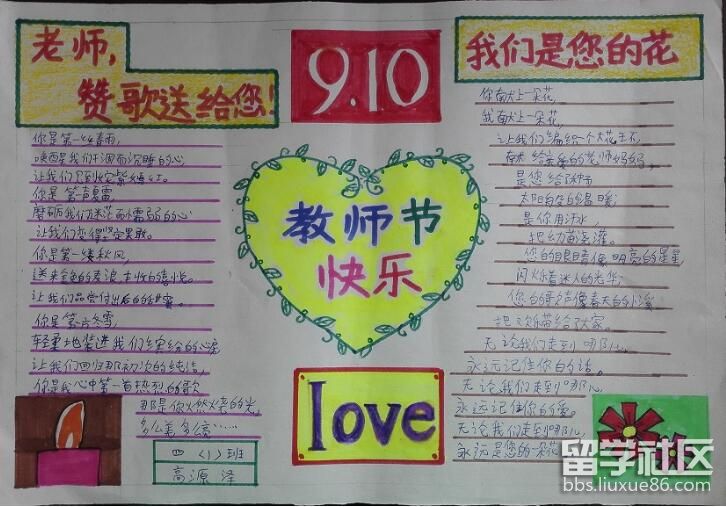 老师,
赞歌送给您!
你是第一丝春雨,
唤醒是我们干涸而沉睡的心
你是第一声惊雷,
让我们变得坚定果敢。
你是第一缕秋风,
送来金色的麦浪 丰收的喜悦。
让我们品尝付出后的甜蜜。
你是第一片冬雪,
让我们回归那初次的纯洁,
你是我心中第一首热烈的歌
那是你燃烧的光,
多么美多么亮……
四〈1〉班
高源泽
9.10
教师节
快乐
love
我们是您的花
你献上一朵花,
我献上一朵花,
让我们编织一个大花环
献给亲爱的老师妈妈,
是您给了种子
太阳般的温暖;
是你用汗水,
把幼苗浇灌。
您的眼睛像明亮的星星
闪烁着迷人的光华;
您的歌声像春天的小溪
把欢乐带给大家。
无论我们走到哪儿,
永远记住你的话。
无论我们走到哪儿,
永远记住你的爱。
无论我们走到哪儿,
永远是您的一朵花
留学社区
bbs.liuxue86.com